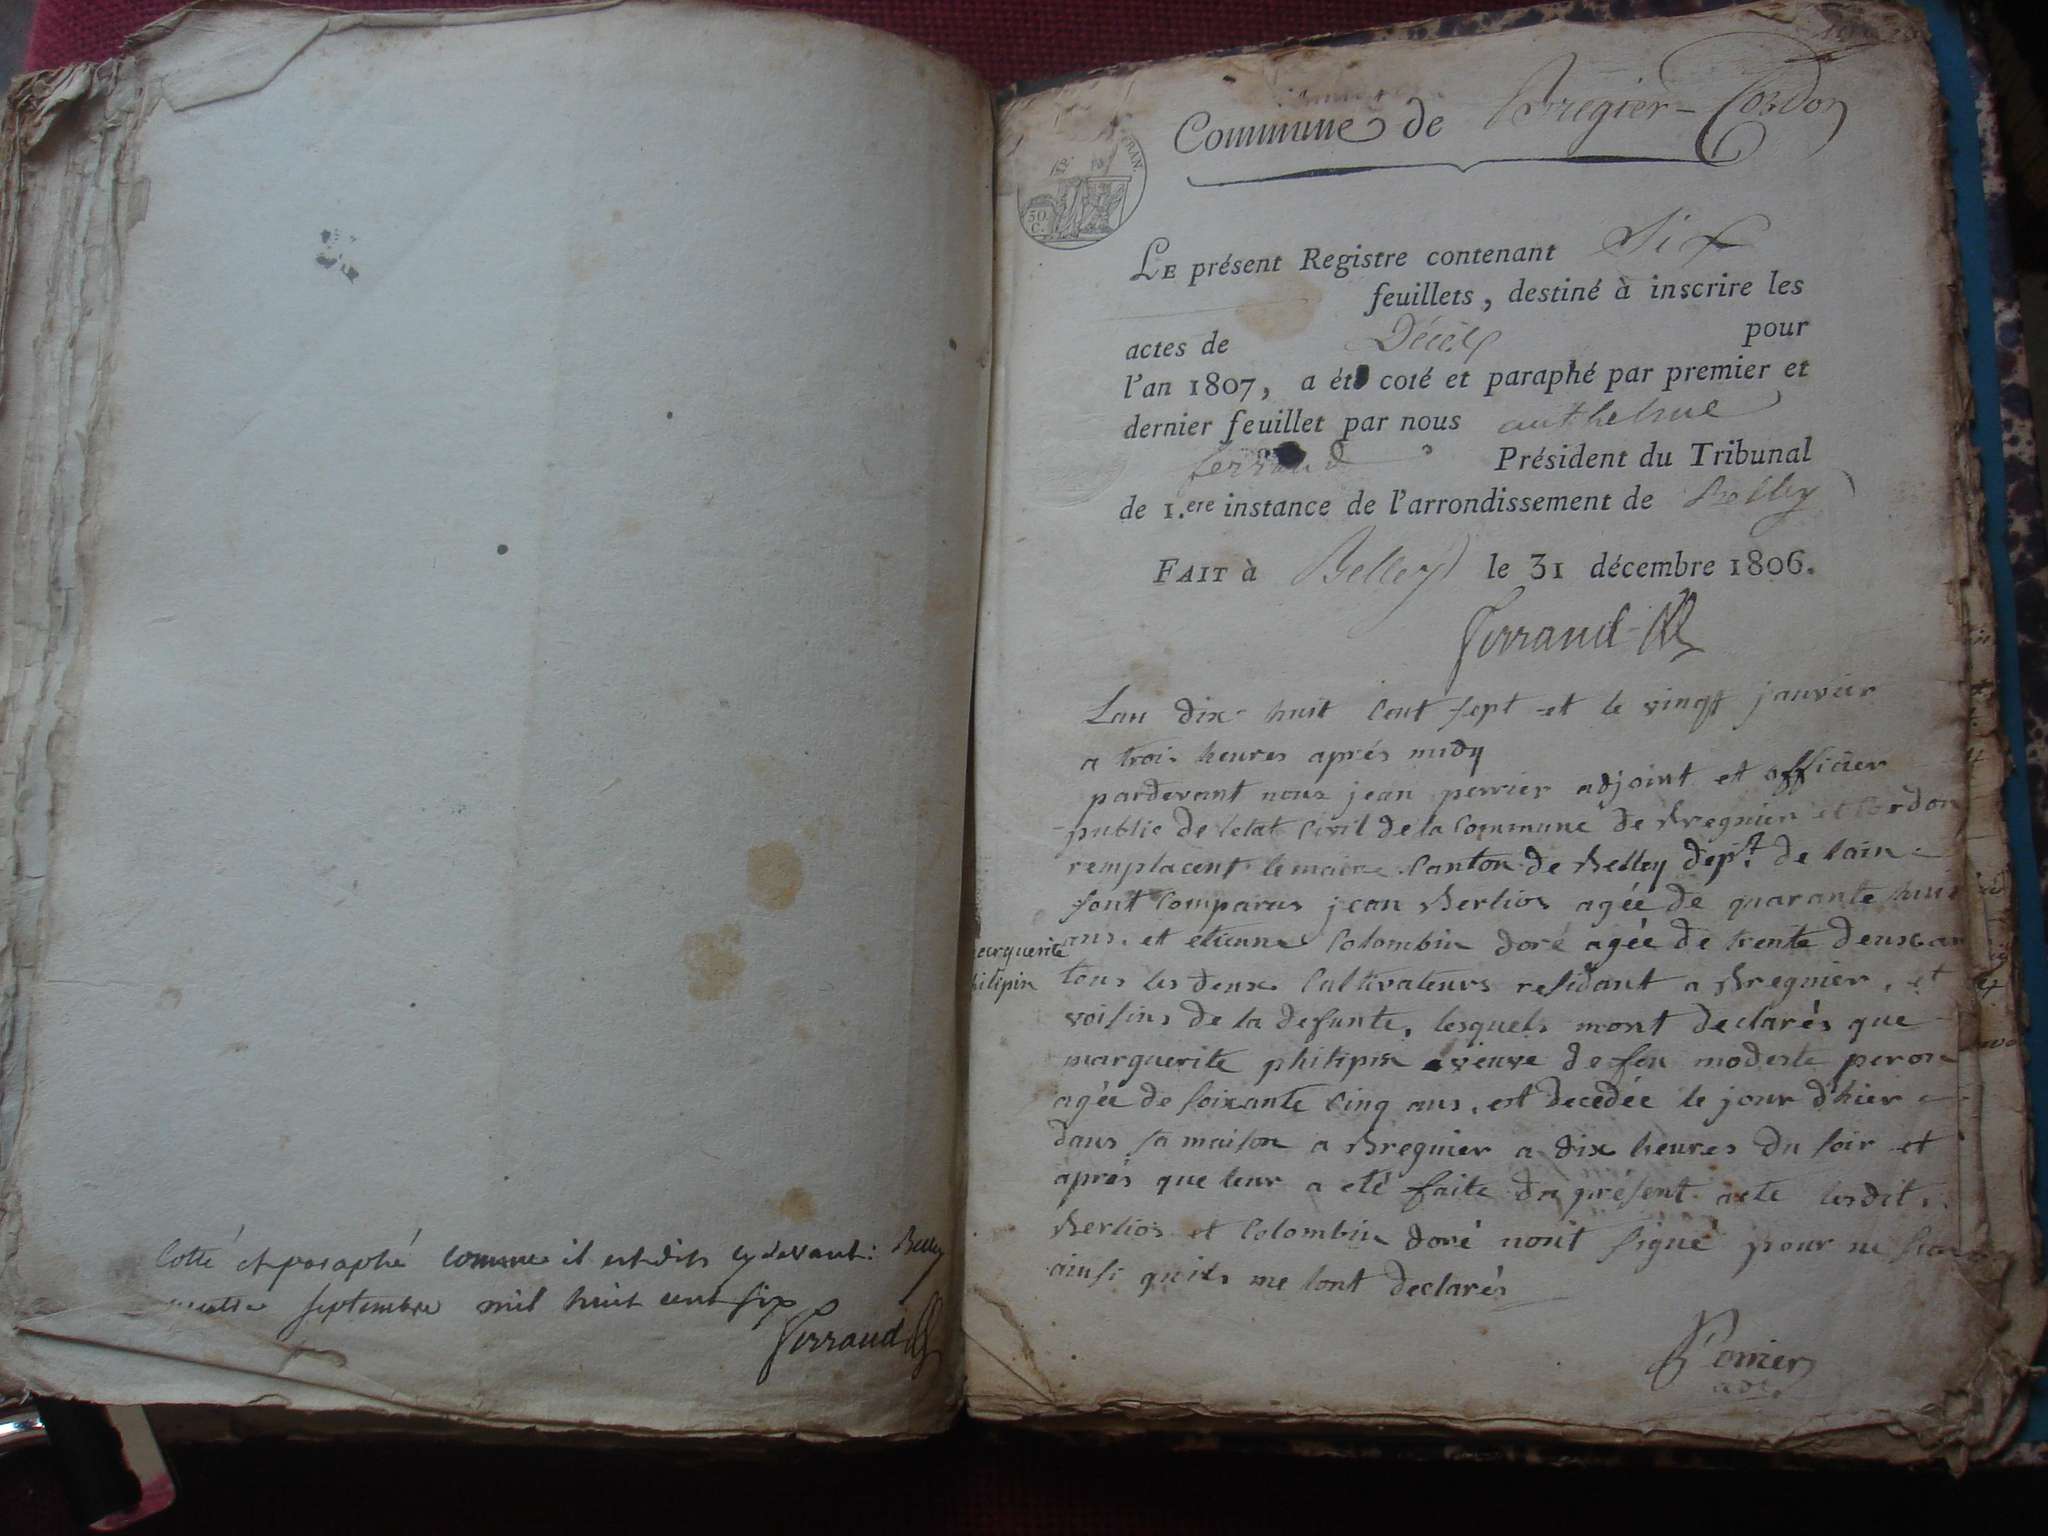 Cotté et paraphé comme il est dit cy devant : Belley
septembre mil huit cent six
Ferraud
Commune de Bregier-Cordon
FRAN.
50
C.
LE présent Registre contenant Six
feuillets, destiné à inscrire les
actes de Décès pour
l'an 1807, a été coté et paraphé par premier et
dernier feuillet par nous anthelme
ferraud Président du Tribunal
de 1.ere instance de l'arrondissement de Belley
FAIT à Belley le 31 décembre 1806.
Ferraud
Lan dix huit Cent sept et le vingt janvier
a trois heures aprés midy
pardevant nous jean perrier adjoint et officier
public de letat Civil de la Commune de Bregnier et Cordon
remplacent lemaire Canton de Belley dept. de lain
sont Comparus jean Berlios agée de quarante huit
ans. et etienne Colombin doré agée de trente deux an
tous les deux Cultivateurs residant a Bregnier, et
marguerite
philipin
voisins de la defunte, lesquels mont declarés que
marguerite philipin veuve de feu modeste peron
agée de soixante Cinq ans, est decedée le jour d'hier
dans sa maison a Bregnier a dix heures du soir et
aprés que leur a eté faite du présent acte lesdits
Berlios et Colombin doré nont signé pour ne
ainsi quils me lont declarés
Perrier
adj.